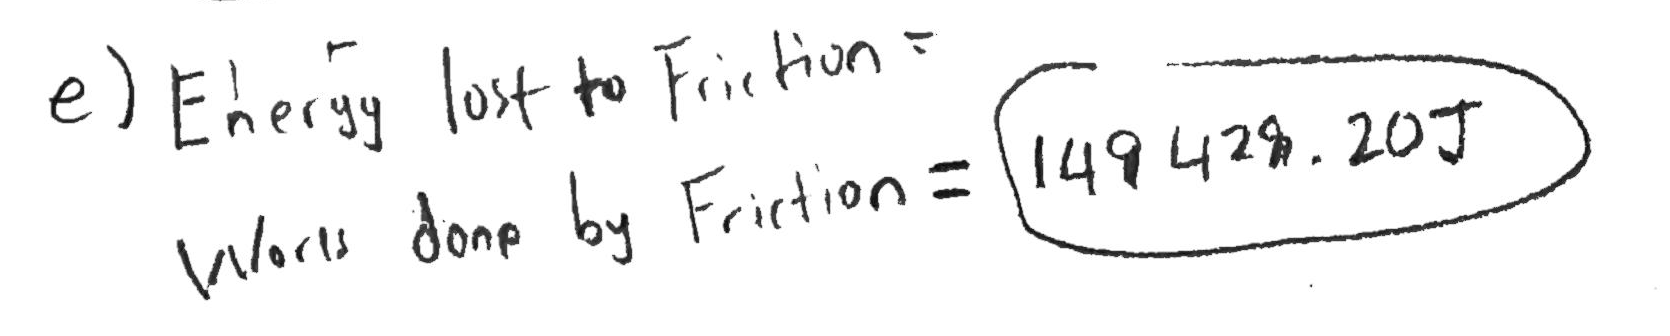 e) Energy lost to Friction =
Work done by Friction = 149 428.20J